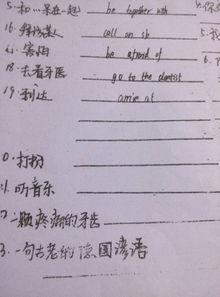 5. 和…呆在一起 be together with
16. 拜访某人 call on sb
17. 害怕 be afraid of
18. 去看牙医 go to the dentist
19. 到达 arrive at
0. 打扮
1. 听音乐
2. 一颗疼痛的牙齿
3. 一句古老的德国谚语